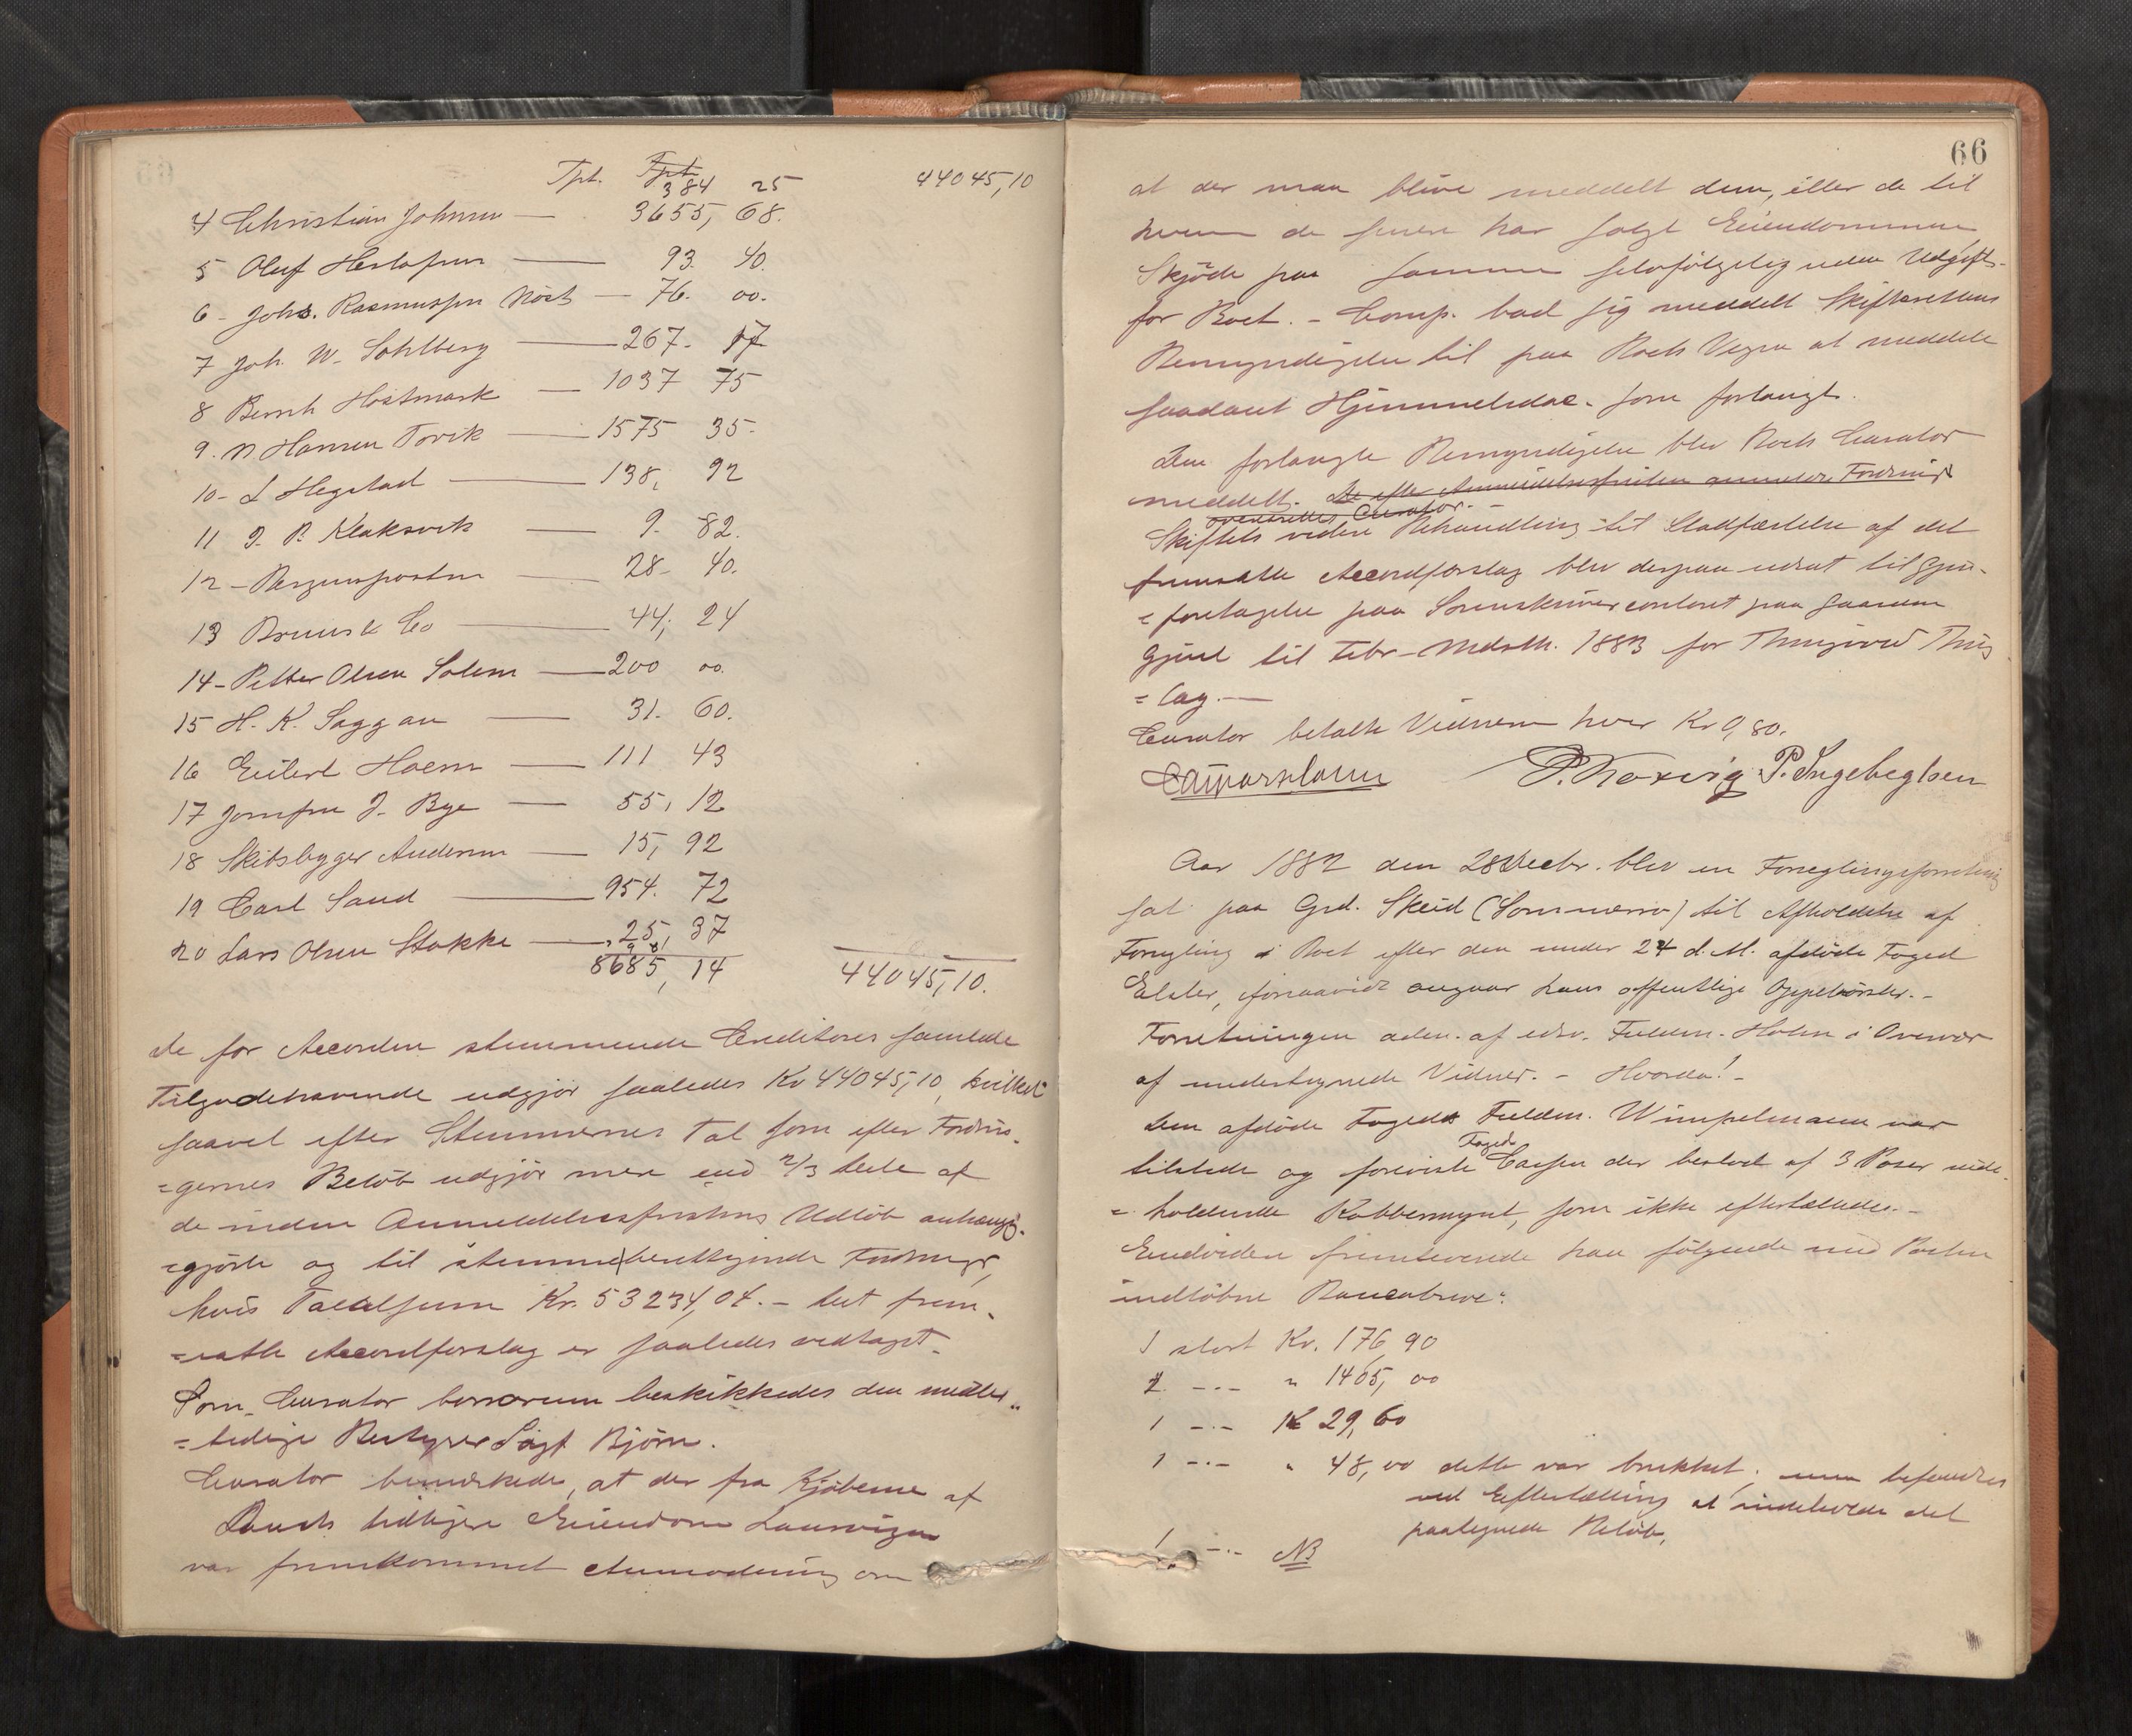 Tpt. 384 25 44045,10
4 Christian Johnsen — 3655, 68.
5 Oluf Herlofsen — 93. 40.
6 - Johs. Rasmussen Nöst — 76. 00.
7 Joh. W. Sohlberg — 267. 17
8 Bernh Hostmark — 1037 75
9. N Hansen Torvik — 1575 35.
10 - L Hegstad — 138, 92
11 J. P. Klaksvik — 9. 82.
12 - Bergensposten — 28 - 40.
13 Bruus & Co — 44, 24
14 - Petter Olsen Solem — 200 00.
15 H. K. Saggau — 31. 60.
16 Eilert Hoem — 111 43
17 Jomfru J. Bye — 55, 12
18 Skibsbygger Andersen — 15, 92
19 Carl Sand — 954. 72
20 Lars Olsen Stokke — 25, 37
8685, 14 44045,10.
De for Accorden stemmende Creditores samlede
Tilgodehavende udgjör saaledes Kr 44045,10, hvilket
saavel efter Stemmernes Tal som efter Fordrin-
=gernes Belöb udgjör mere end 2/3 dele af
de inden Anmeldelsesfristens Udlöb anhængig-
=gjorte og til stemmeberettigende Fordringer,
hvis Totalsum Kr. 53234,04. - Det frem-
=satte Accordforslag er saaledes vedtaget.
Som Curator bonorum beskikkedes den midler-
=tidige Bestyrer Sagf Björn.
Curator bemærkede, at der fra Kjöberne af
Boets tidligere Eiendom
var fremkommet Anmodning om
66
at der maa blive meddelt dem, eller de til
hvem de senere har solgt Eiendommen
Skjöde paa samme selvfölgelig uden Udgift
for Boet. - Comp. bad sig meddelt Skifterettens
Bemyndigelse til paa Boets Vegne at meddele
saadant Hjemmelsdoc. som forlangt.
Den forlangte Bemyndigelse blev Boets Curator
meddelt. De efter Anmeldelsesfristen anmeldte Fordring
Curator. -
Skiftets videre Behandling til Stadfæstelse af det
fremsatte Accordforslag blev derpaa udsat til Gjen-
=foretagelse paa Sorenskrivercontoret paa Gaarden
Gjævl til Febr - Mdsth. 1883 for Thingvold Thing
=lag. —
Curator betalte Vidnerne hver Kr 0,80.
P. Ingebregtsen
Aar 1882 den 28 Decbr. blev en Forseglingsforretning
sat paa Grd. Skeid (Sommerro) til Afholdelse af
Forsegling i Boet efter den under 24 d. M. afdöde Foged
Elster, forsaavidt angaar hans offentlige Oppebörsler. -
Forretningen adm. af edsv. Fuldm. Holm i Overvær
af undertegnede Vidner. - Hvorda! -
Den afdöde Fogeds Fuldm. Wimpelmann var
tilstede og foreviste Fogedcassen der bestod af 3 Poser inde-
=holdende Kobbermynt, som ikke eftertaltes. -
Endvidere fremleverede han fölgende med Posten
indlöbne Pancebreve:
1 stort Kr. 176,90
2 -.- " 1465, 00
1 -.- K 29,60
1 -.- " 48,00 dette var brukket, men befandtes
ved Eftertælling at indeholde det
paategnede Belöb.
1 -.- NB